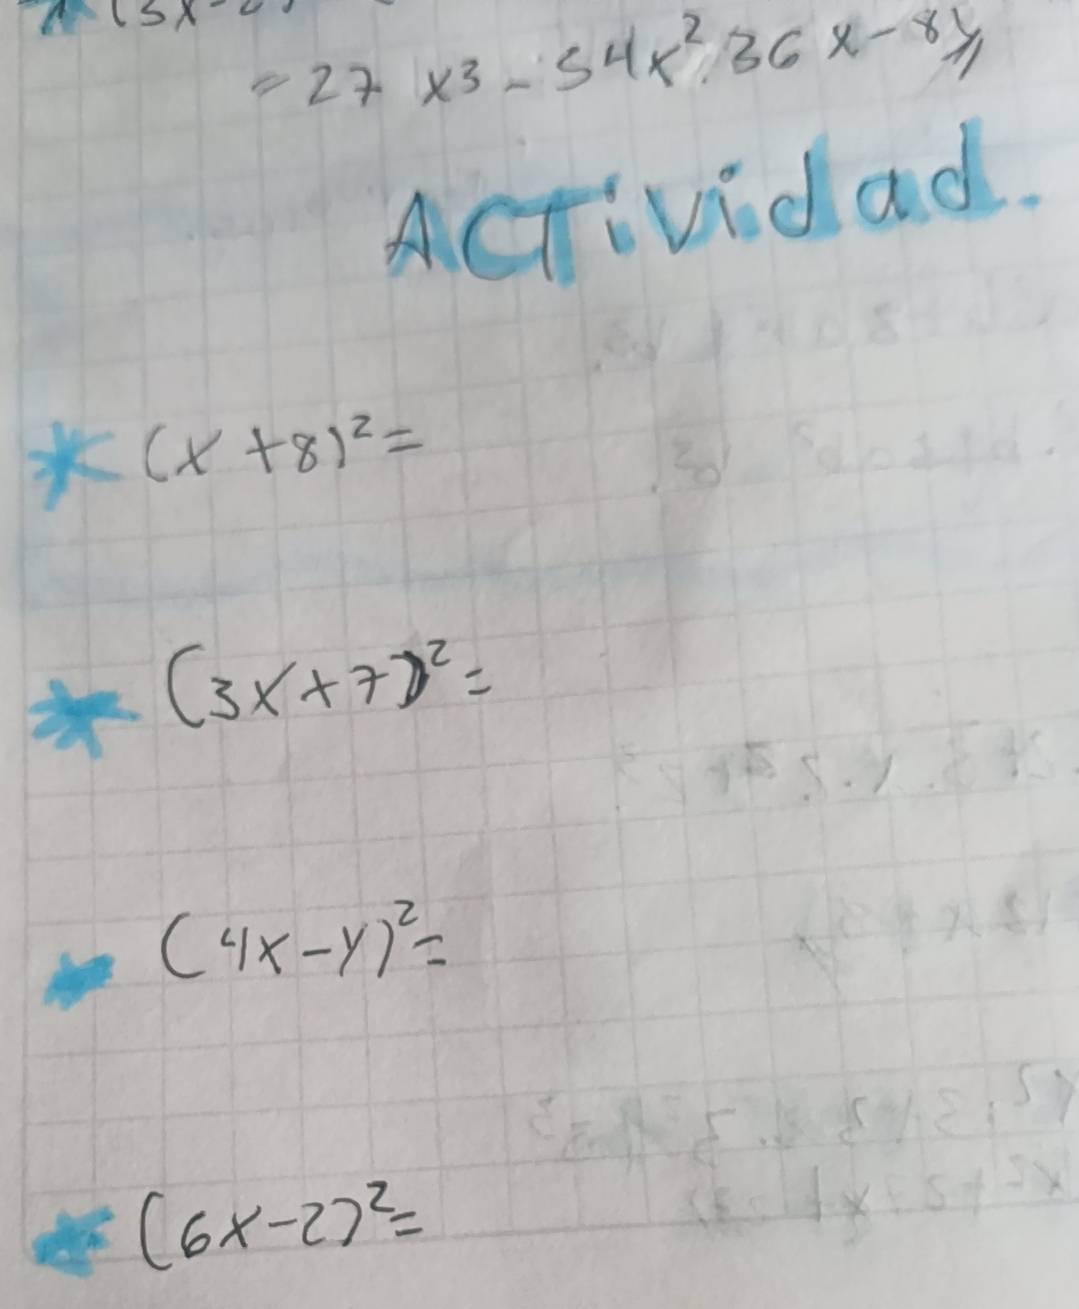 (3x-2)
=27x3-54x².36x-8y
ACTividad.
(x+8)²=
(3x+7)²=
(4x-y)²=
(6x-2)²=